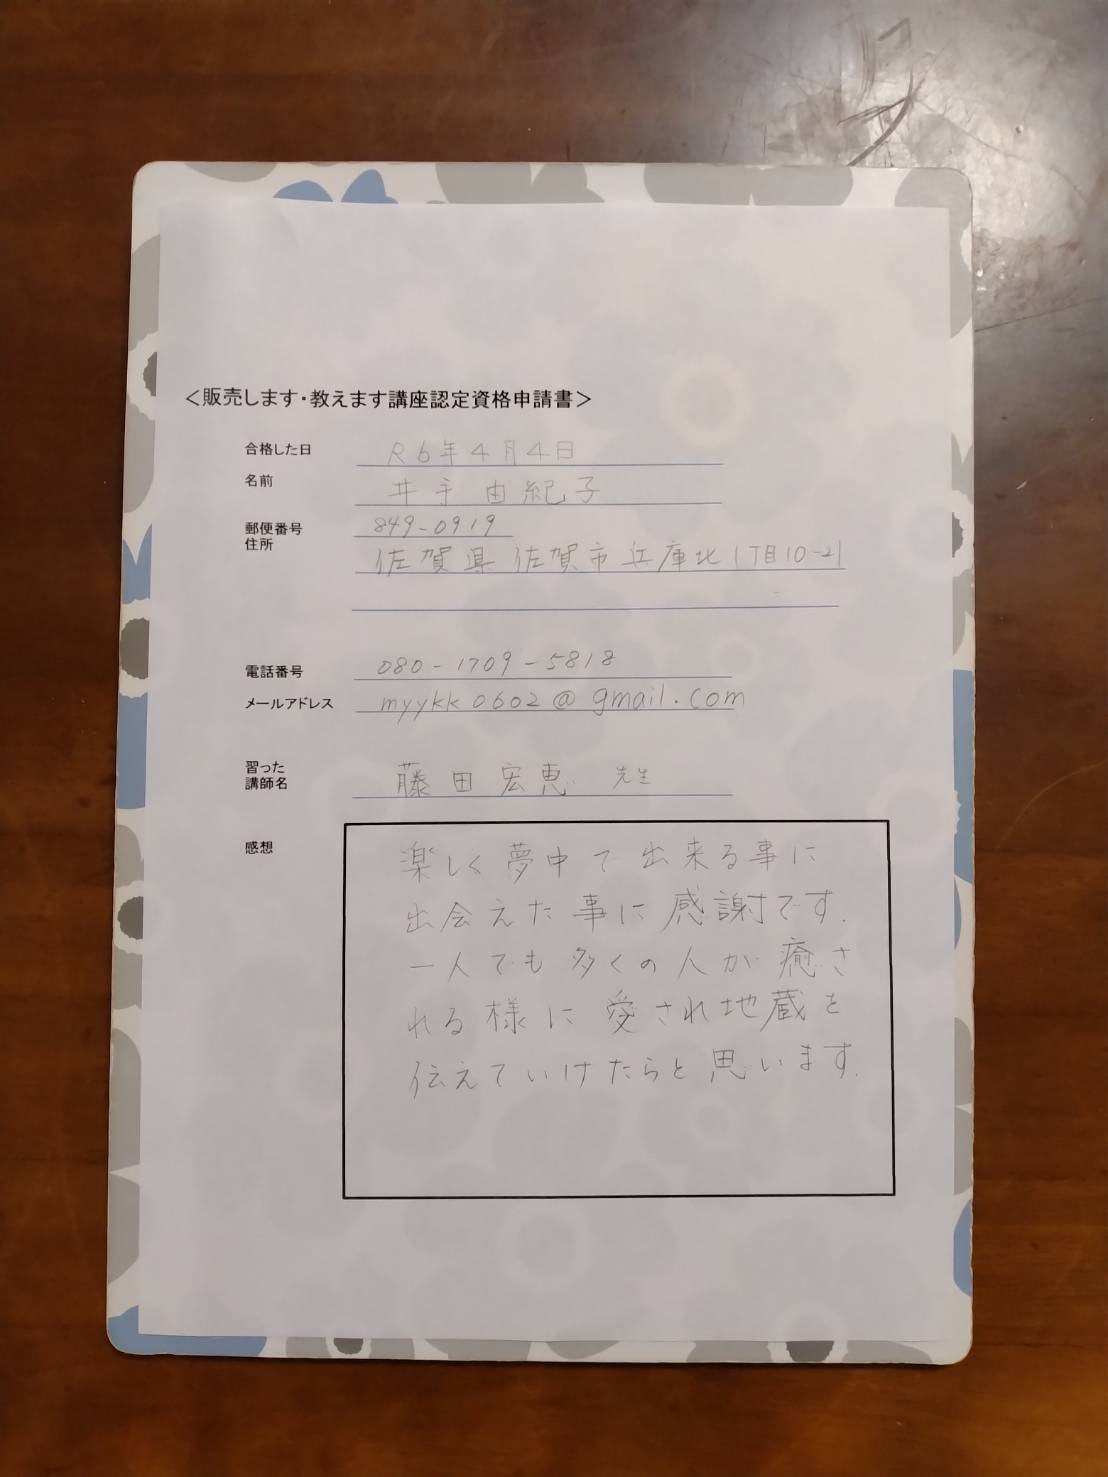 ＜販売します・教えます講座認定資格申請書＞
合格した日 R6年4月4日
名前 井手由紀子
郵便番号 849-0919
住所 佐賀県佐賀市兵庫北1丁目10-21
電話番号 080-1709-5818
メールアドレス myykk0602@gmail.com
習った
講師名 藤田宏恵 先生
感想
楽しく夢中で出来る事に
出会えた事に感謝です.
一人でも多くの人が癒さ
れる様に愛され地蔵を
伝えていけたらと思います.